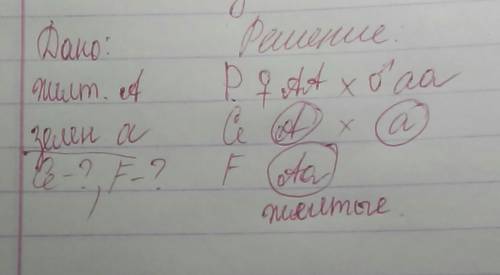 Дано: Решение:
желт. А Р. ♀ АА × ♂ аа
зелен а G А × а
G-?, F-? F Аа
желтые.